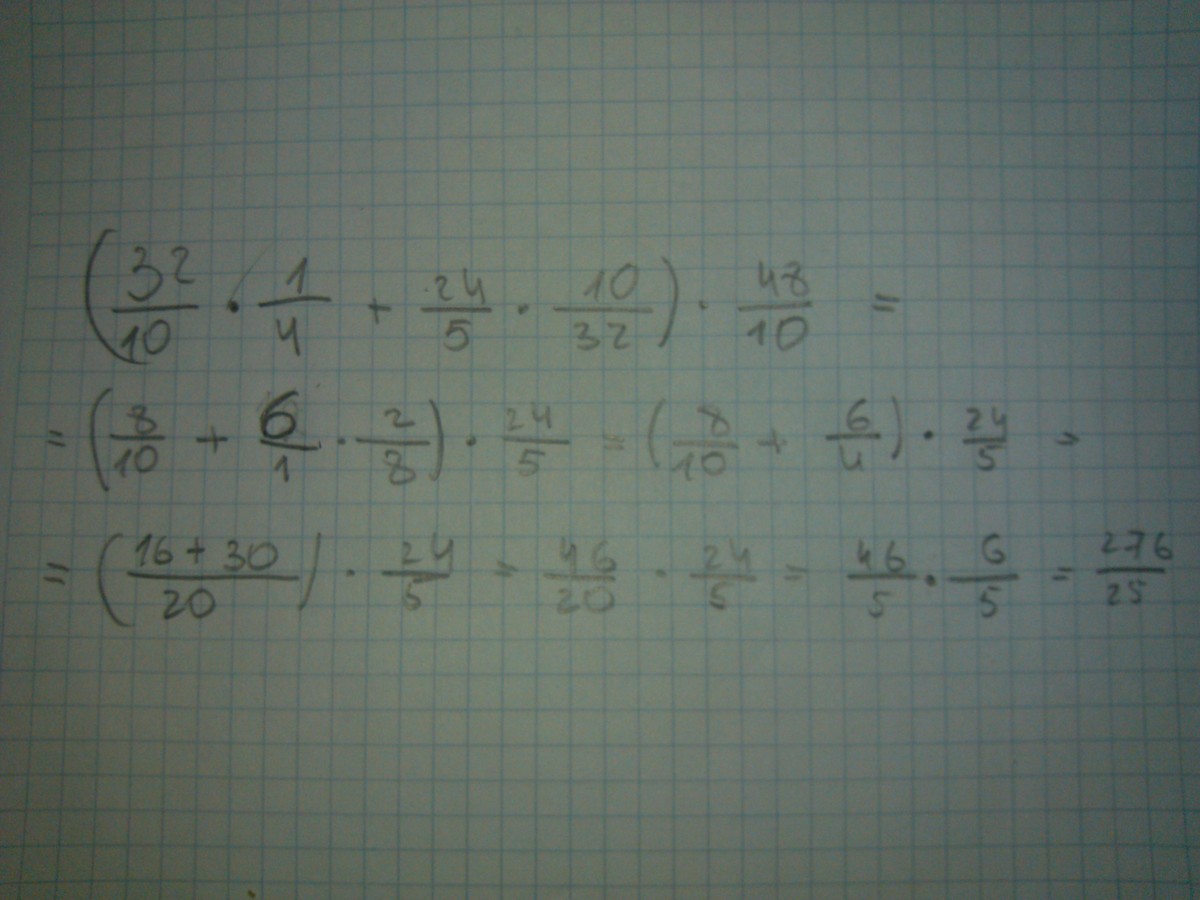 (32/10 · 1/4 + 24/5 · 10/32) · 48/10 =
= (8/10 + 6/1 · 2/8) · 24/5 = (8/10 + 6/4) · 24/5 =
= (16+30/20) · 24/5 = 46/20 · 24/5 = 46/5 · 6/5 = 276/25